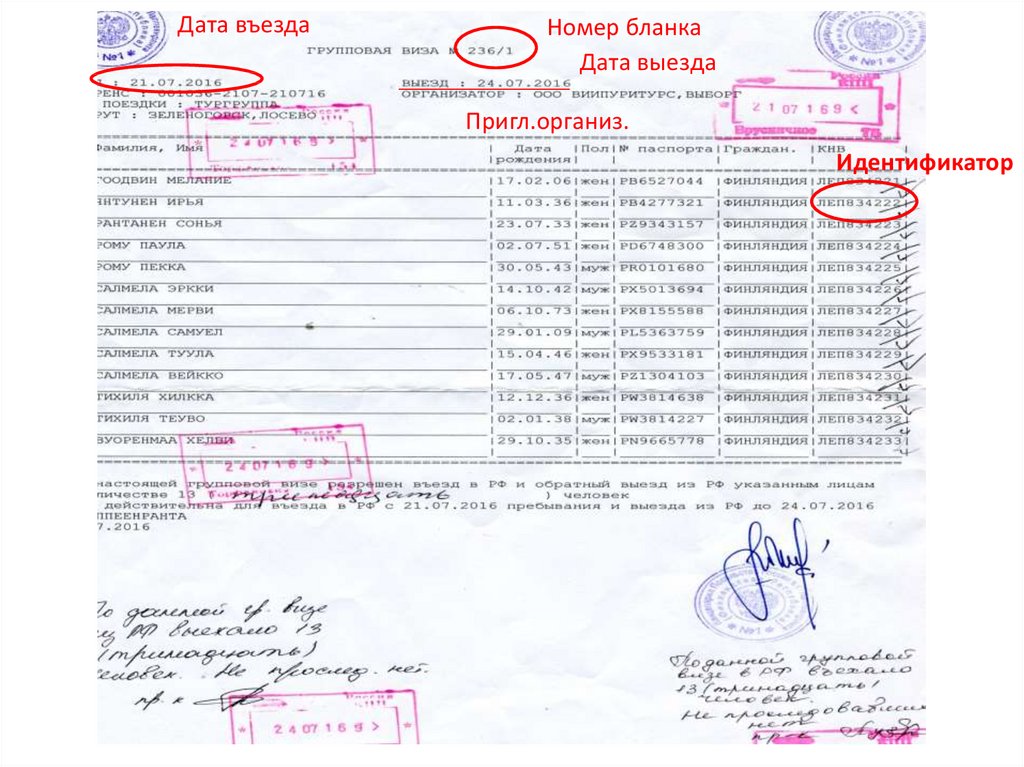 Дата въезда
Номер бланка
ГРУППОВАЯ ВИЗА № 236/1
Дата выезда
: 21.07.2016 ВЫЕЗД : 24.07.2016
РЕНС : 001036-2107-210716 ОРГАНИЗАТОР : ООО ВИИПУРИТУРС,ВЫБОРГ
ПОЕЗДКИ : ТУРГРУППА
РУТ : ЗЕЛЕНОГОРСК,ЛОСЕВО
Пригл.организ.
Россия
КПП
21 07 16 9 <
Брусничное
24 07 16 9 >
Фамилия, Имя |Дата рождения|Пол|№ паспорта|Граждан. |КНВ
Идентификатор
ГООДВИН МЕЛАНИЕ |17.02.06|жен|PB6527044 |ФИНЛЯНДИЯ|ЛЕП834221|
ЯНТУНЕН ИРЬЯ |11.03.36|жен|PB4277321 |ФИНЛЯНДИЯ|ЛЕП834222|
РАНТАНЕН СОНЬЯ |23.07.33|жен|PZ9343157 |ФИНЛЯНДИЯ|ЛЕП834223|
РОМУ ПАУЛА |02.07.51|жен|PD6748300 |ФИНЛЯНДИЯ|ЛЕП834224|
РОМУ ПЕККА |30.05.43|муж|PR0101680 |ФИНЛЯНДИЯ|ЛЕП834225|
САЛМЕЛА ЭРККИ |14.10.42|муж|PX5013694 |ФИНЛЯНДИЯ|ЛЕП834226|
САЛМЕЛА МЕРВИ |06.10.73|жен|PX8155588 |ФИНЛЯНДИЯ|ЛЕП834227|
САЛМЕЛА САМУЕЛ |29.01.09|муж|PL5363759 |ФИНЛЯНДИЯ|ЛЕП834228|
САЛМЕЛА ТУУЛА |15.04.46|жен|PX9533181 |ФИНЛЯНДИЯ|ЛЕП834229|
САЛМЕЛА ВЕЙККО |17.05.47|муж|PZ1304103 |ФИНЛЯНДИЯ|ЛЕП834230|
ТИХИЛЯ ХИЛККА |12.12.36|жен|PW3814638 |ФИНЛЯНДИЯ|ЛЕП834231|
ТИХИЛЯ ТЕУВО |02.01.38|муж|PW3814227 |ФИНЛЯНДИЯ|ЛЕП834232|
ВУОРЕНМАА ХЕЛВИ |29.10.35|жен|PN9665778 |ФИНЛЯНДИЯ|ЛЕП834233|
Россия
КПП
24 07 16 9 >
настоящей групповой визе разрешен въезд в РФ и обратный выезд из РФ указанным лицам
личестве 13 ( тринадцать ) человек
действительна для въезда в РФ с 21.07.2016 пребывания и выезда из РФ до 24.07.2016
ППЕЕНРАНТА
7.2016
По данной гр. визе
из РФ выехало 13
(тринадцать)
человек. Не прослед. нет.
пр. к
По данной групповой
визе в РФ въехало
13 (тринадцать)
человек.
Не проследовавших
нет
Россия
24 07 16 9 >